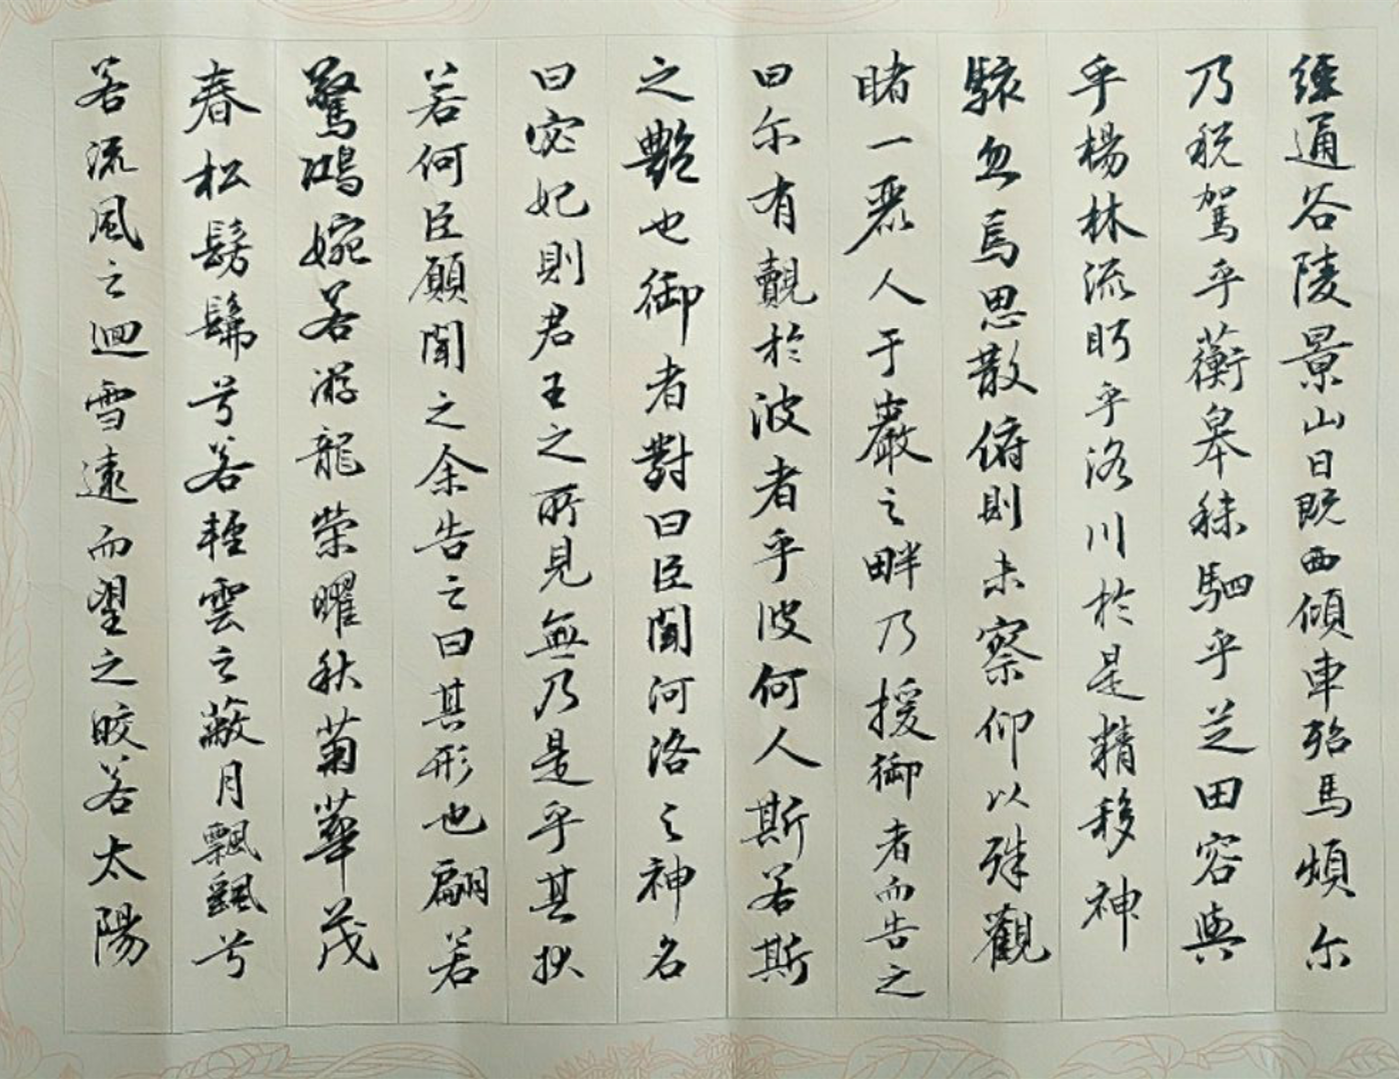 經通谷陵景山日既西傾車殆馬煩尔
乃税駕乎蘅皋秣駟乎芝田容與
乎楊林流眄乎洛川於是精移神
駭忽焉思散俯則未察仰以殊觀
睹一麗人于巖之畔乃援御者而告之
曰尔有覿於彼者乎彼何人斯若斯
之艷也御者對曰臣聞河洛之神名
曰宓妃則君王之所見無乃是乎其狀
若何臣願聞之余告之曰其形也翩若
驚鴻婉若游龍榮曜秋菊華茂
春松髣髴兮若輕雲之蔽月飄颻兮
若流風之迴雪遠而望之皎若太陽